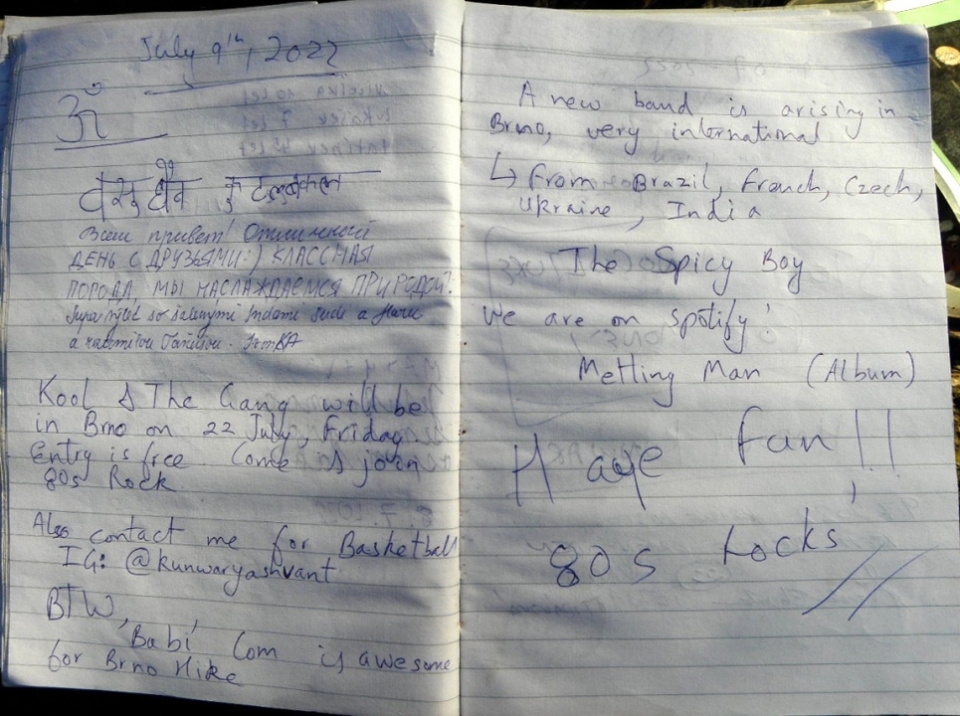 July 9th, 2022
ॐ
Всем привет! Отличный
ДЕНЬ С ДРУЗЬЯМИ:) КЛАССНАЯ
ПОГОДА, МЫ НАСЛАЖДАЕМСЯ ПРИРОДОЙ!
Kool & The Gang will be
in Brno on 22 July, Friday
Entry is free. Come & join
80s Rock
Also contact me for Basketball
IG: @kunwaryashvant
BTW,
'Babi' Com is awesome
for Brno Hike
A new band is arising in
Brno, very international
↳ from Brazil, French, Czech,
Ukraine, India
The Spicy Boy
We are on spotify!
Melting Man (Album)
Have fun!!
80s rocks